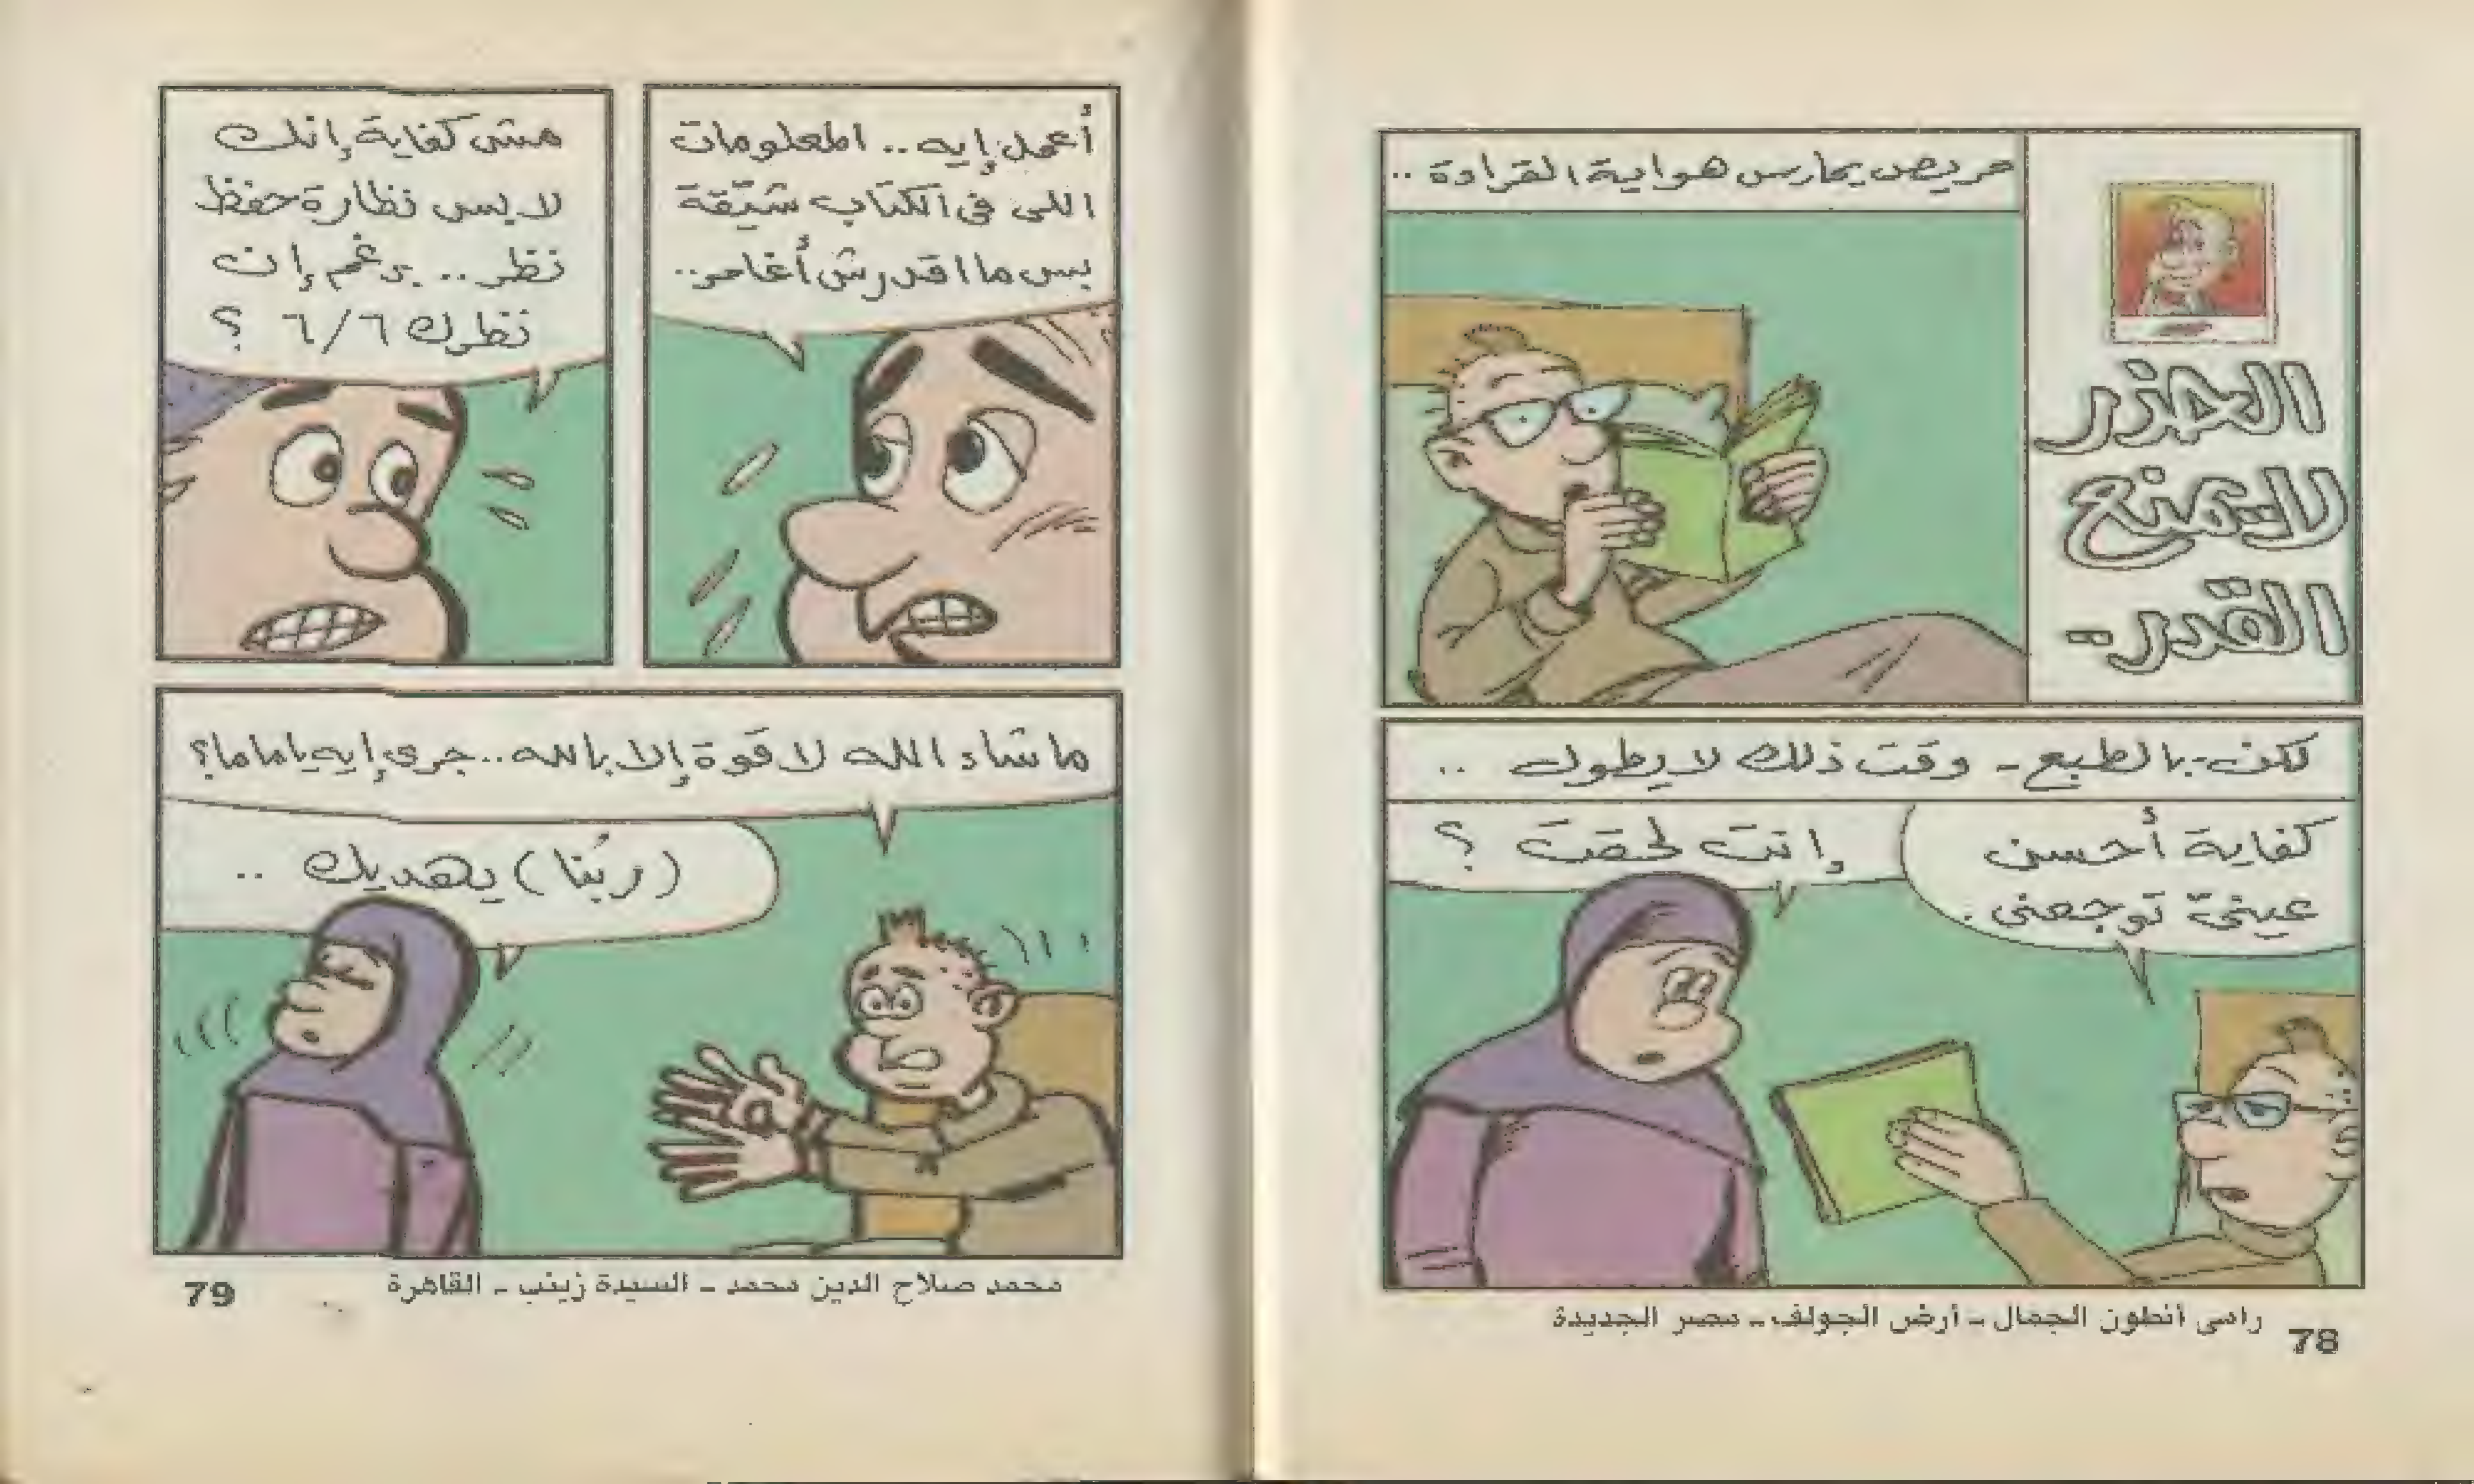 الحذر
لا يمنع
القدر..
حريص يمارس هواية القراءة ..
لكن - بالطبع - وقت ذلك لا يطول ..
كفاية أحسن
عينىّ توجعنى .
وإنت لحقت ؟
رامى أنطون الجمال - أرض الجولف - مصر الجديدة
78
أعمل إيه .. المعلومات
اللى فى الكتاب شيّقة
بس ما اقدرش أغامر ..
مش كفاية إنك
لابس نظارة حفظ
نظر .. برغم إن
نظرك ٦/٦ ؟
ما شاء الله لا قوة إلا بالله .. جرى إيه يا ماما؟
(ربُنا) يهديك ..
محمد صلاح الدين محمد - السيدة زينب - القاهرة
79